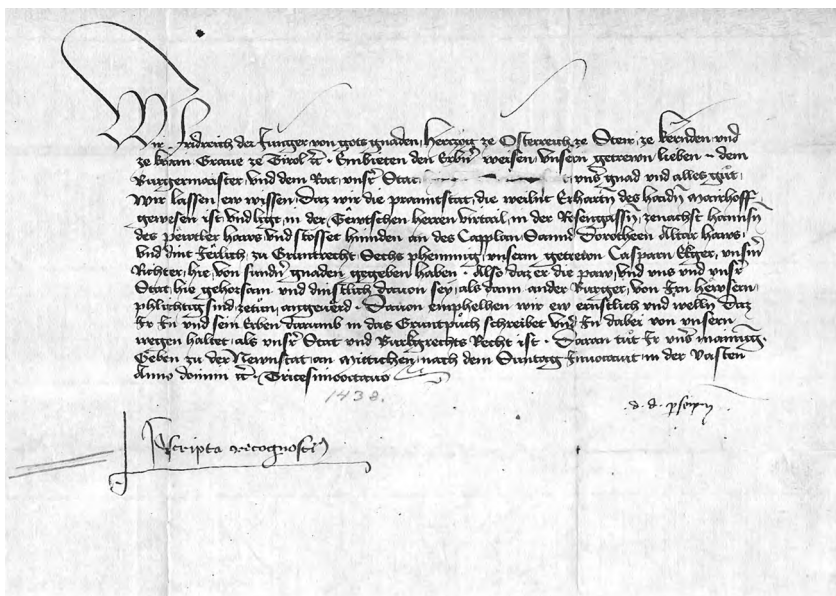 Wir Fridreich der Junger von gots gnaden, Herczog ze Osterreich ze Steir ze kernden und
ze krain Graue ze Tirol etc. Embieten den Erbern weisen, unsern getrewn lieben dem
Burgermaister, und dem Rat, unsrer Stat unser gnad und alles gůt,
Wir lassen ew wissen, Daz wir die pranntstat, die weilnt Erhartn des haidn Mairhoff
gewesen ist, und ligt, in der Têwtschen herren virtail, in der Rosengassn, zenachst hannsn
des pewtler haws, und stosset hinnden an des Capplan Sannd Dorotheen Altar haws,
und dint Jêrlich, zu Gruntrecht Sechs phenning, unsern getrewn Casparn Ekger, unserm
Richter, hie, von sundern gnaden gegeben haben. Also daz er die paw, und uns und unsrer
Stat, hie gehorsam und dinstlich dauon sey, als dann ander Burger, von Irn hêwsern
phlichtig sind zetůn, angeuerd. Dauon emphelhen wir ew ernstlich und welln Daz
Ir In und sein Erben darumb in das Gruntpuch schreibet und In dabei von unsern
wegen haltet, als unsrer Stat und Burkgrechts Recht ist. Daran tůt Ir uns mainung.
Geben zu der Newnstat, an Mittichen, nach dem Suntag Inuocauit, in der Vasten
Anno domini etc. Tricesimooctauo
1438.
d. d. p
scripta recognosc